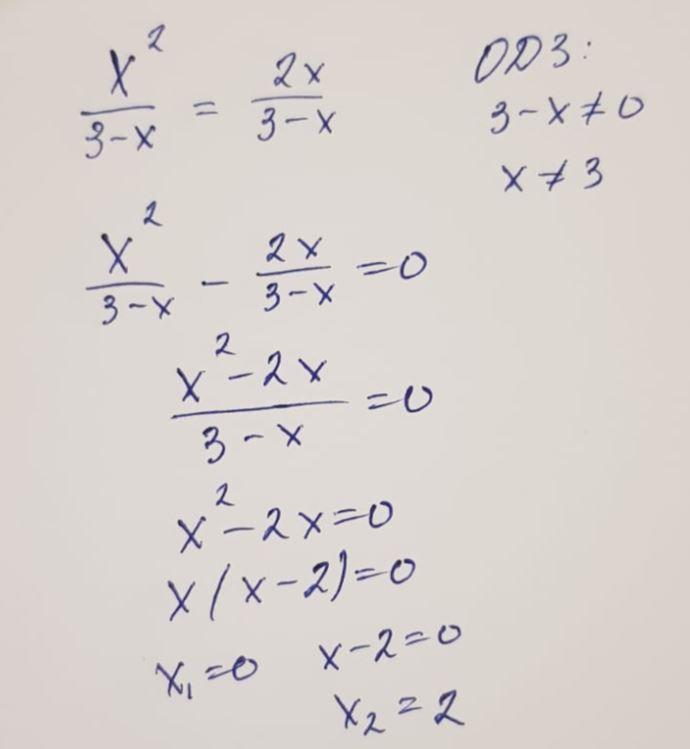 x²/(3-x) = 2x/(3-x)
ОДЗ:
3-x≠0
x≠3
x²/(3-x) - 2x/(3-x) =0
(x²-2x)/(3-x) =0
x²-2x=0
x(x-2)=0
x₁=0 x-2=0
x₂=2